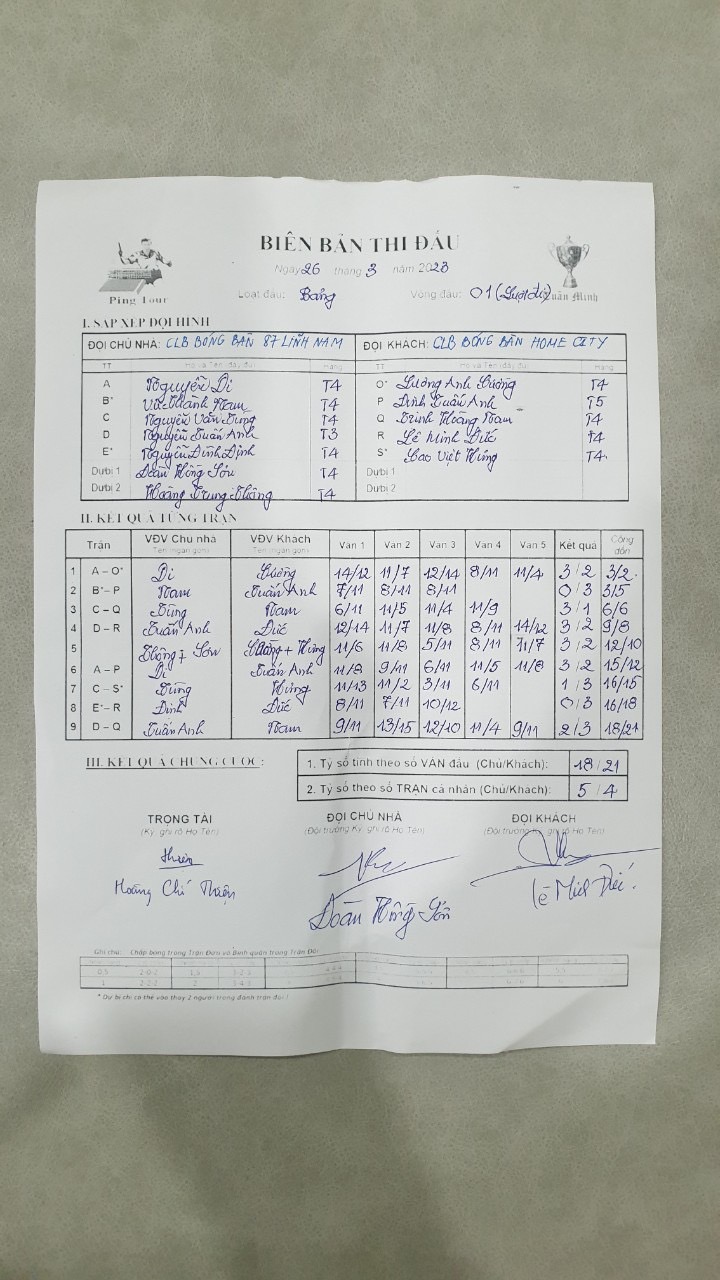 BIÊN BẢN THI ĐẤU
Ngày 26 tháng 3 năm 2023
Ping Tour
Loạt đấu: Bảng Vòng đấu: 01 (Lượt đi)
Xuân Minh
I. SẮP XẾP ĐỘI HÌNH
ĐỘI CHỦ NHÀ: CLB BÓNG BÀN 87 LĨNH NAM ĐỘI KHÁCH: CLB BÓNG BÀN HOME CITY
TT Họ và Tên (đầy đủ) Hạng TT Họ và Tên (đầy đủ) Hạng
A Nguyễn Di T4 O* Lương Anh Cường T4
B* Vũ Thành Nam T4 P Đinh Tuấn Anh T5
C Nguyễn Văn Dũng T4 Q Trịnh Hoàng Nam T4
D Nguyễn Tuấn Anh T3 R Lê Minh Đức T4
E* Nguyễn Đình Định T4 S* Cao Việt Hưng T4
Dự bị 1 Đoàn Hồng Sơn T4 Dự bị 1
Dự bị 2 Hoàng Trung Thông T4 Dự bị 2
II. KẾT QUẢ TỪNG TRẬN
Trận VĐV Chủ nhà VĐV Khách Ván 1 Ván 2 Ván 3 Ván 4 Ván 5 Kết quả Cộng dồn
Tên (ngắn gọn) Tên (ngắn gọn)
1 A – O* Di Cường 14/12 11/7 12/14 8/11 11/4 3/2 3/2
2 B* – P Nam Tuấn Anh 7/11 8/11 8/11 0/3 3/5
3 C – Q Dũng Nam 6/11 11/5 11/4 11/9 3/1 6/6
4 D – R Tuấn Anh Đức 12/14 11/7 11/8 8/11 14/12 3/2 9/8
5 Thông + Sơn + Hưng 11/6 11/8 5/11 8/11 11/7 3/2 12/10
6 A – P Di Tuấn Anh 11/8 9/11 6/11 11/5 11/8 3/2 15/12
7 C – S* Dũng Hưng 11/13 11/2 3/11 6/11 1/3 16/15
8 E* – R Định Đức 8/11 7/11 10/12 0/3 16/18
9 D – Q Tuấn Anh Nam 9/11 13/15 12/10 11/4 9/11 2/3 18/21
III. KẾT QUẢ CHUNG CUỘC:
1. Tỷ số tính theo số VÁN đấu (Chủ/Khách): 18/21
2. Tỷ số theo số TRẬN cá nhân (Chủ/Khách): 5/4
TRỌNG TÀI ĐỘI CHỦ NHÀ ĐỘI KHÁCH
(Ký, ghi rõ Họ Tên) (Đội trưởng Ký, ghi rõ Họ Tên) (Đội trưởng Ký, ghi rõ Họ Tên)
Hoàng Chí Thiện Đoàn Hồng Sơn Lê Minh Đức
Ghi chú: Chấp bóng trong Trận Đơn và Bình quân trong Trận Đôi
* Dự bị chỉ có thể vào thay 2 người trong đánh trận đôi !